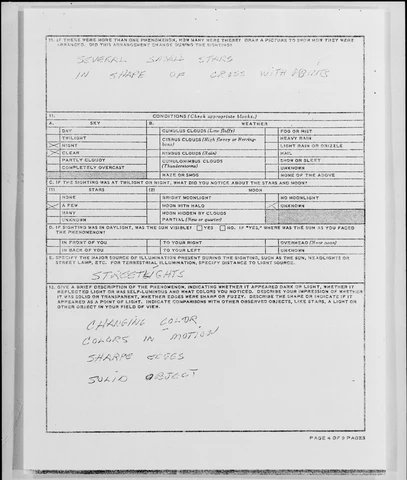 10. IF THERE WERE MORE THAN ONE PHENOMENON, HOW MANY WERE THERE? DRAW A PICTURE TO SHOW HOW THEY WERE
ARRANGED. DID THIS ARRANGEMENT CHANGE DURING THE SIGHTING?
SEVERAL SMALL STARS
IN SHAPE OF CROSS WITH POINTS
11. CONDITIONS (Check appropriate blocks.)
A. SKY B. WEATHER
DAY CUMULUS CLOUDS (Low fluffy) FOG OR MIST
TWILIGHT CIRRUS CLOUDS (High fleecy or Herring-bone) HEAVY RAIN
X NIGHT LIGHT RAIN OR DRIZZLE
X CLEAR NIMBUS CLOUDS (Rain) HAIL
PARTLY CLOUDY CUMULONIMBUS CLOUDS (Thunderstorms) SNOW OR SLEET
COMPLETELY OVERCAST UNKNOWN
HAZE OR SMOG NONE OF THE ABOVE
C. IF THE SIGHTING WAS AT TWILIGHT OR NIGHT, WHAT DID YOU NOTICE ABOUT THE STARS AND MOON?
(1) STARS (2) MOON
NONE BRIGHT MOONLIGHT NO MOONLIGHT
X A FEW MOON WITH HALO X UNKNOWN
MANY MOON HIDDEN BY CLOUDS
UNKNOWN PARTIAL (New or quarter)
D. IF SIGHTING WAS IN DAYLIGHT, WAS THE SUN VISIBLE? YES NO. IF "YES," WHERE WAS THE SUN AS YOU FACED
THE PHENOMENON?
IN FRONT OF YOU TO YOUR RIGHT OVERHEAD (Near noon)
IN BACK OF YOU TO YOUR LEFT UNKNOWN
E. SPECIFY THE MAJOR SOURCE OF ILLUMINATION PRESENT DURING THE SIGHTING, SUCH AS THE SUN, HEADLIGHTS OR
STREET LAMP, ETC. FOR TERRESTRIAL ILLUMINATION, SPECIFY DISTANCE TO LIGHT SOURCE.
STREETLIGHTS
12. GIVE A BRIEF DESCRIPTION OF THE PHENOMENON, INDICATING WHETHER IT APPEARED DARK OR LIGHT, WHETHER IT
REFLECTED LIGHT OR WAS SELF-LUMINOUS AND WHAT COLORS YOU NOTICED. DESCRIBE YOUR IMPRESSION OF WHETHER
IT WAS SOLID OR TRANSPARENT, WHETHER EDGES WERE SHARP OR FUZZY. DESCRIBE THE SHAPE OR INDICATE IF IT
APPEARED AS A POINT OF LIGHT. INDICATE COMPARISONS WITH OTHER OBSERVED OBJECTS, LIKE STARS, A LIGHT OR
OTHER OBJECT IN YOUR FIELD OF VIEW.
CHANGING COLOR
COLORS IN MOTION
SHARPE EDGES
SOLID OBJECT
PAGE 4 OF 9 PAGES